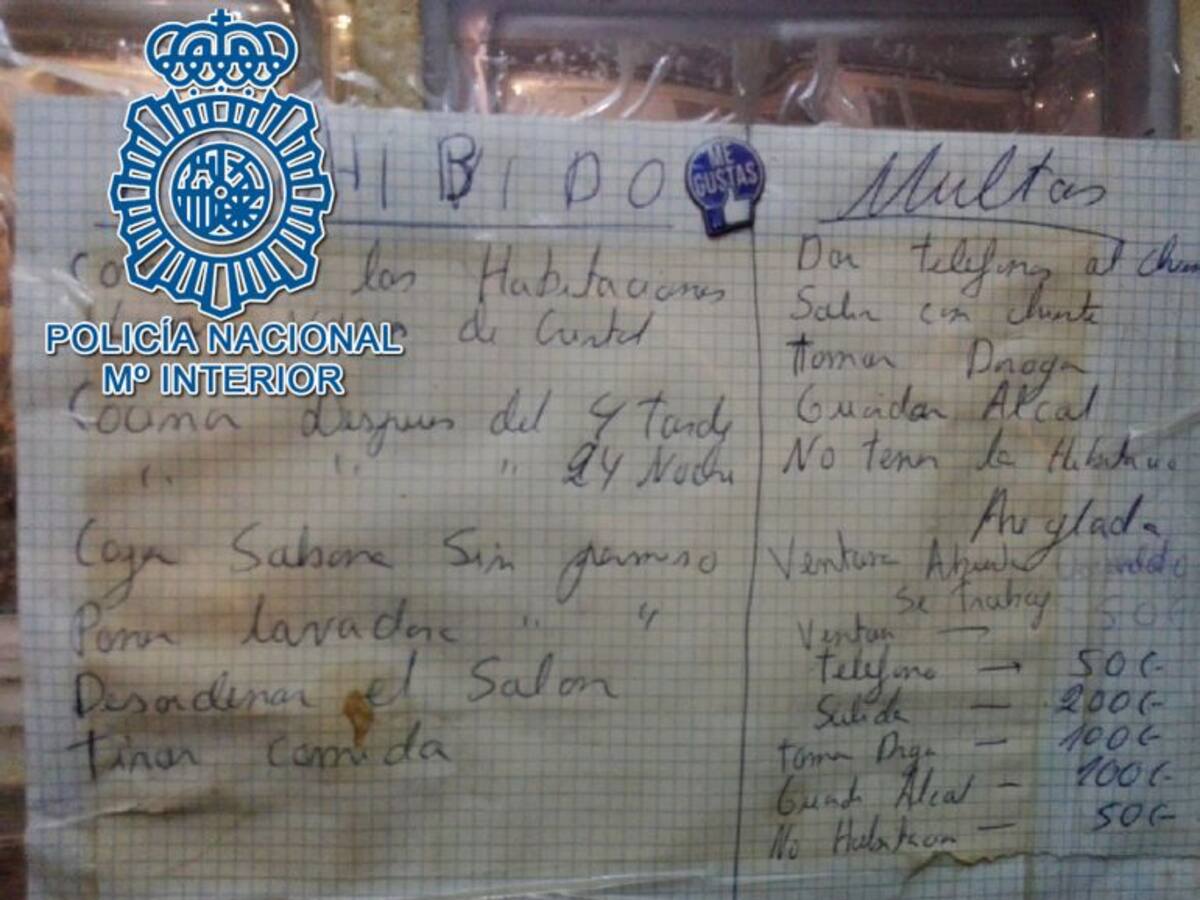 POLICÍA NACIONAL
Mº INTERIOR
HIBIDO
ME GUSTAS
las Habitaciones
de Cristal
Cocina despues del 4 Tarde
" " " 24 Noche
Coger Sabana Sin permiso
Poner lavadora " "
Desordenar el Salon
Tirar comida
Multas
Dar telefono al
Salir con cliente
Tomar Droga
Guardar Alcol
No tener la Habitacio
Arreglada
Ventana Abierta
se trabaj
Ventan —
telefono → 50€
Salida — 200€
toma Drga — 100€
Guard Alcol — 100€
No Habitacion — 50€